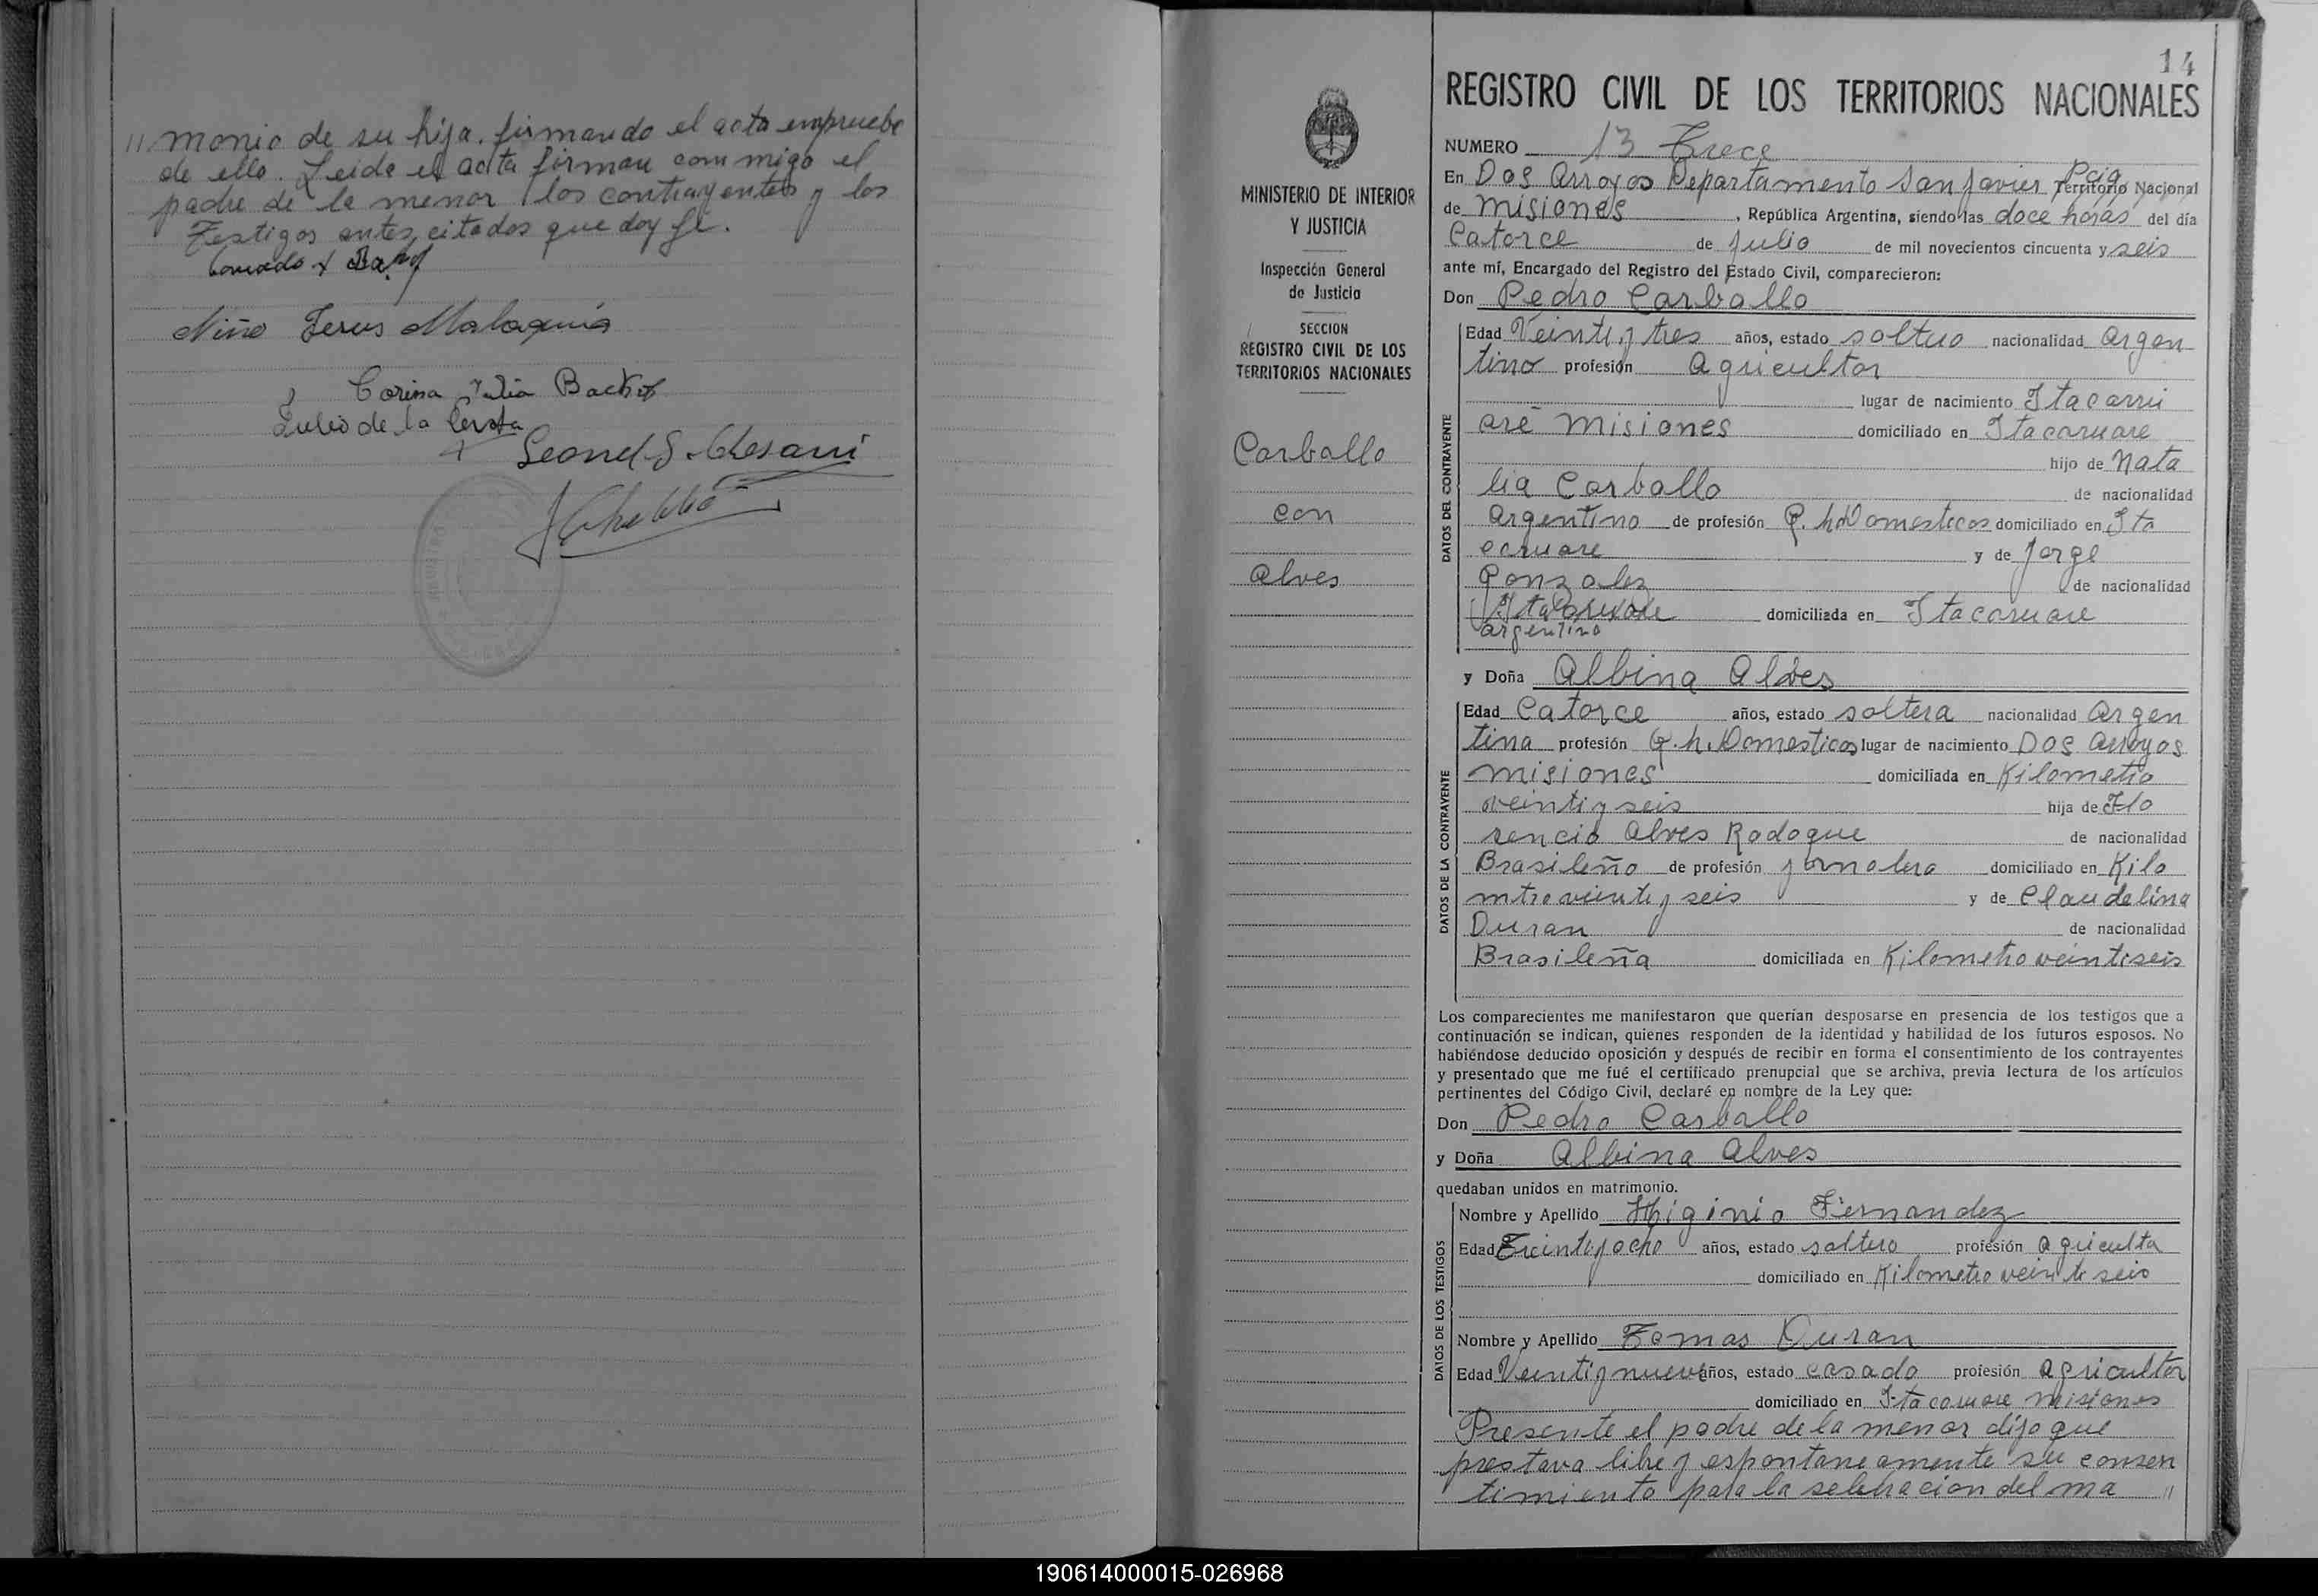 // monio de su hija. firmando el acta empruebe
de ello. Leida el acta firman conmigo el
padre de la menor los contrayentes y los
Testigos antes citados que doy fe.
Niño Jesus Malaquia
Corina Julia
Julio de la
Leonel S.
14
REGISTRO CIVIL DE LOS TERRITORIOS NACIONALES
MINISTERIO DE INTERIOR
Y JUSTICIA
Inspección General
de Justicia
SECCION
REGISTRO CIVIL DE LOS
TERRITORIOS NACIONALES
Carballo
con
Alves
NUMERO 13 Trece
En Dos Arroyos Departamento San Javier Pcia Territorio Nacional
de Misiones, República Argentina, siendo las doce horas del día
Catorce de Julio de mil novecientos cincuenta y seis
ante mí, Encargado del Registro del Estado Civil, comparecieron:
Don Pedro Carballo
DATOS DEL CONTRAYENTE
Edad Veinti y tres años, estado soltero nacionalidad Argen
tino profesión Agricultor
lugar de nacimiento Itacarru
are Misiones domiciliado en Itacaruare
hijo de Nata
lia Carballo de nacionalidad
Argentino de profesión Q. h. Domesticos domiciliado en Ita
caruare y de Jorge
Gonzalez de nacionalidad
Itacaruare domiciliada en Itacaruare
argentino
y Doña Albina Alves
DATOS DE LA CONTRAYENTE
Edad Catorce años, estado soltera nacionalidad Argen
tina profesión Q. h. Domesticos lugar de nacimiento Dos Arroyos
Misiones domiciliada en Kilometro
veinti y seis hija de Flo
rencio Alves Rodogue de nacionalidad
Brasileño de profesión jornalero domiciliado en Kilo
mtro veinte y seis y de Claudelina
Duran de nacionalidad
Brasileña domiciliada en Kilometro veintiseis
Los comparecientes me manifestaron que querían desposarse en presencia de los testigos que a
continuación se indican, quienes responden de la identidad y habilidad de los futuros esposos. No
habiéndose deducido oposición y después de recibir en forma el consentimiento de los contrayentes
y presentado que me fué el certificado prenupcial que se archiva, previa lectura de los artículos
pertinentes del Código Civil, declaré en nombre de la Ley que:
Don Pedro Carballo
y Doña Albina Alves
quedaban unidos en matrimonio.
DATOS DE LOS TESTIGOS
Nombre y Apellido Higinio Fernandez
Edad Treinti y ocho años, estado soltero profesión agriculta
domiciliado en Kilometro veinte seis
Nombre y Apellido Tomas Duran
Edad Veinti y nueve años, estado casado profesión agricultor
domiciliado en Itacaruare Misiones
Presente el padre de la menor dijo que
prestava libre y espontaneamente su consen
timiento para la selebracion del ma //
190614000015-026968